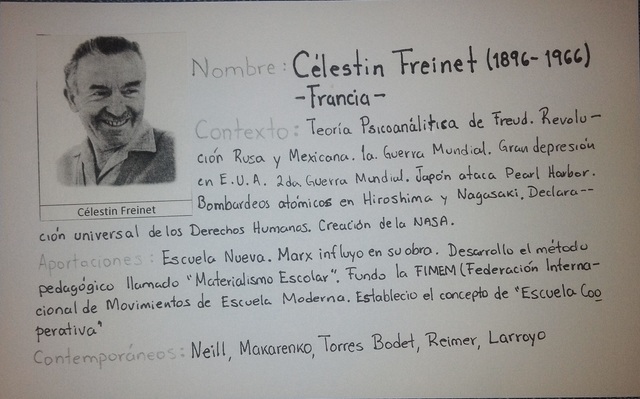 Nombre: Célestin Freinet (1896-1966)
-Francia-
Contexto: Teoría Psicoanálitica de Freud. Revolu-
ción Rusa y Mexicana. 1a. Guerra Mundial. Gran depresión
en E.U.A. 2da Guerra Mundial. Japón ataca Pearl Harbor.
Bombardeos atómicos en Hiroshima y Nagasaki. Declara--
Célestin Freinet
ción universal de los Derechos Humanos. Creación de la NASA.
Aportaciones: Escuela Nueva. Marx influyo en su obra. Desarrollo el método
pedagógico llamado "Materialismo Escolar". Fundo la FIMEM (Federación Interna-
cional de Movimientos de Escuela Moderna. Establecio el concepto de "Escuela Coo
perativa"
Contemporáneos: Neill, Makarenko, Torres Bodet, Reimer, Larroyo